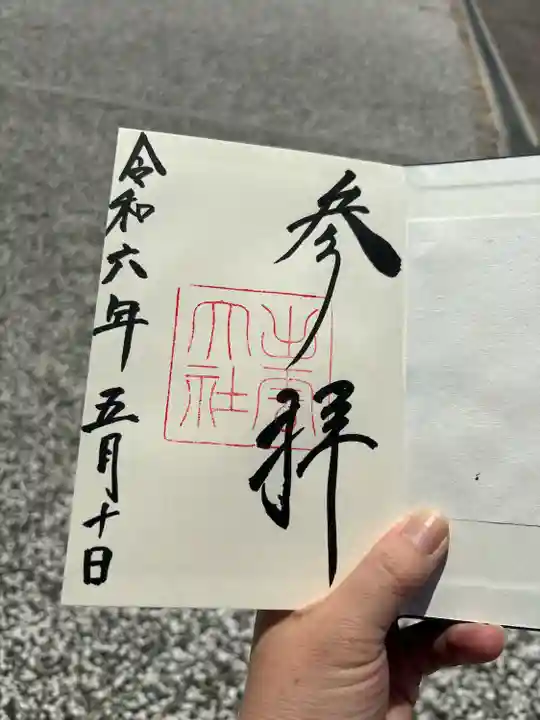 参拜
出雲大社
令和六年五月十日